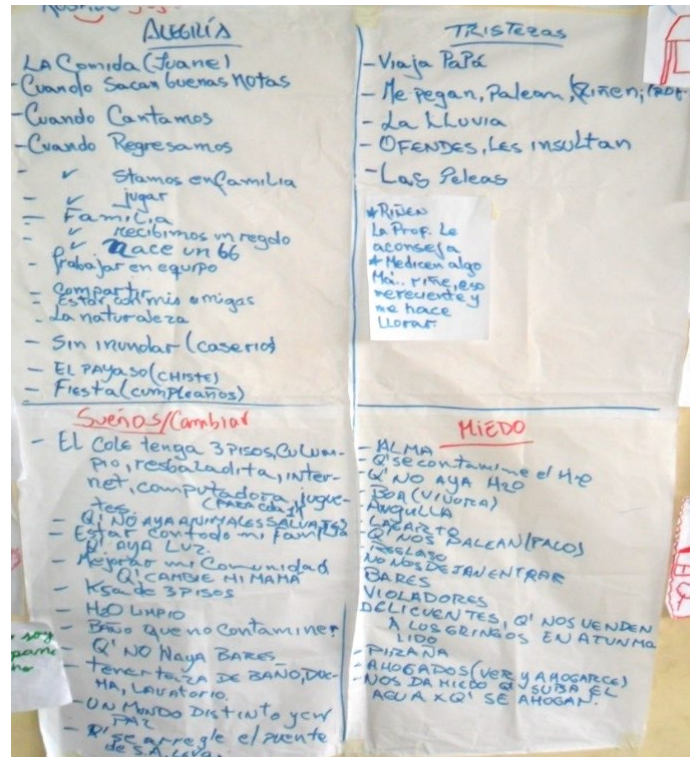 ALEGRÍA
LA Comida (Juane)
-Cuando Sacan buenas notas
-Cuando Cantamos
-Cuando Regresamos
- ✓ Stamos en familia
- ✓ jugar
- Familia
- ✓ recibimos un regalo
- ✓ Nace un bb
- Trabajar en equipo
- Compartir
- Estar con mis amigas
- La naturaleza
- Sin inundar (caserios)
- EL PAYASO (CHISTE)
- Fiesta (cumpleaños)
TRISTEZAS
- Viaja PaPá
- Me pegan, Palean, Riñen,
- La LLuvia
- OFENDES, LES INSULTAN
- Las Peleas
* RIÑEN
La Prof. Le
aconseja
* Me dicen algo
Má.. riñe, eso
me
me hace
LLorar
Sueños/Cambiar
- EL Cole tenga 3 PISOS, Culum-
pio, resbaladita, inter-
net, computadora, jugue-
tes. (PARA cada 1)
- Q' NO AYA ANIMALES SALVAJES
- Estar con todo mi familia
Q' AYA LUZ.
- Mejorar mi Comunidad
Q' CAMBIE MI MAMA
- Ksa de 3 PISOS
- H2O LIMPIO
- BAÑO Que no contamine
Q' NO Haya BARES
- tener taza DE BAÑO, DUC-
HA, LAVATORIO.
- UN MUNDO DISTINTO y CON
PAZ
- Q' se arregle el Puente
de S.A.
MIEDO
- ALMA
- Q' se contamine el H2O
- Q' NO AYA H2O
- BOA (VIVORA)
- ANGUILLA
- LAGARTO
- Q' NOS BALEAN (PALOS)
- REGLASO
NO NOS DEJAN ENTRAR
BARES
VIOLADORES
DELICUENTES, Q' NOS VENDEN
A LOS GRINGOS EN
- PIRAÑA
- AHOGADOS (VER Y AHOGARCE)
- NOS DA MIEDO Q' SUBA EL
AGUA X Q' SE AHOGAN.
soy